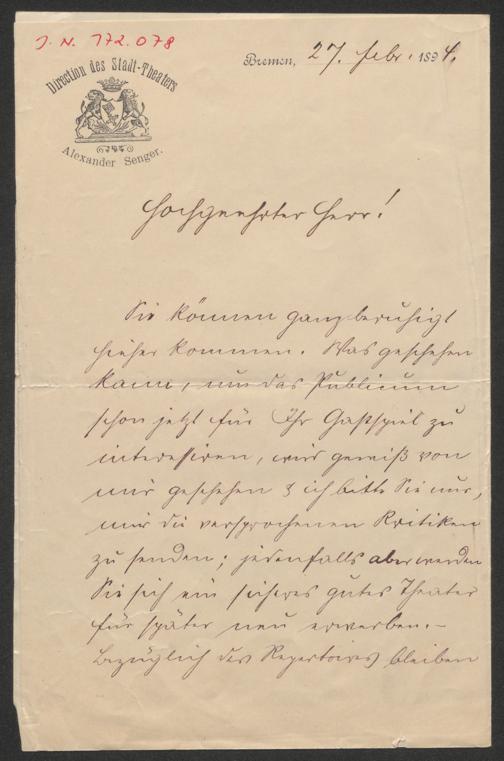 J. N. 172.078
Direction des Stadt-Theaters
Alexander Senger.
Bremen, 27. Febr. 1894.
Hochgeehrter Herr!
Sie können ganz beruhigt
hieher kommen. Was geschehen
kann, um das Publicum
schon jetzt für Ihr Gastspiel zu
interessiren, wird gewiß von
mir geschehen & ich bitte Sie nur,
mir die versprochenen Kritiken
zu senden; jedenfalls aber werden
Sie sich ein sicheres gutes Theater
für später neu erwerben.–
Bezüglich des Repertoires bleiben